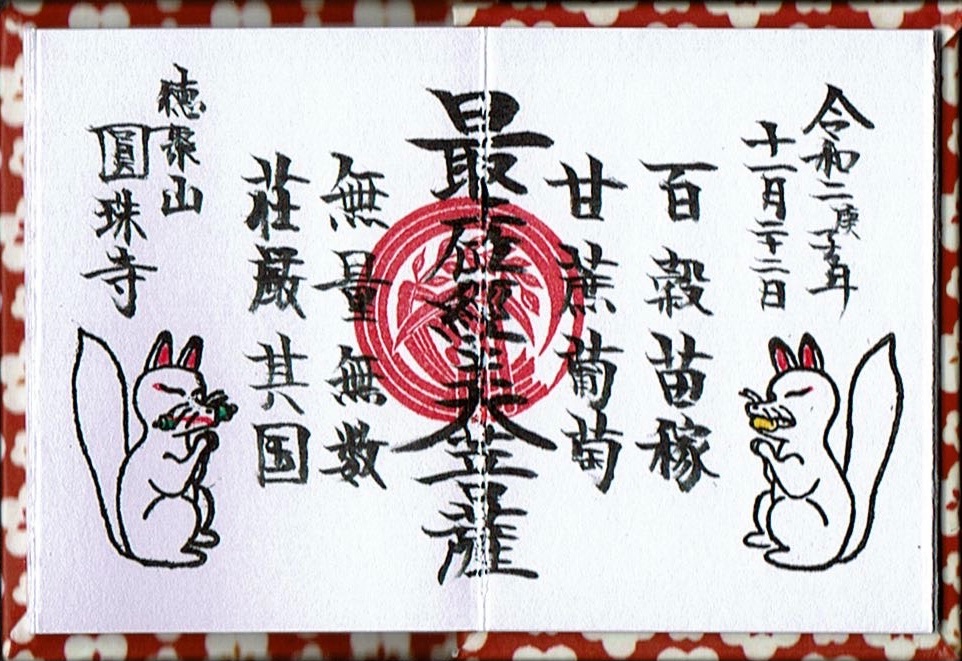 令和二庚子年
十一月二十二日
百穀苗稼
甘蔗葡萄
最上位經王大菩薩
無量無数
荘厳其国
徳聚山
圓珠寺